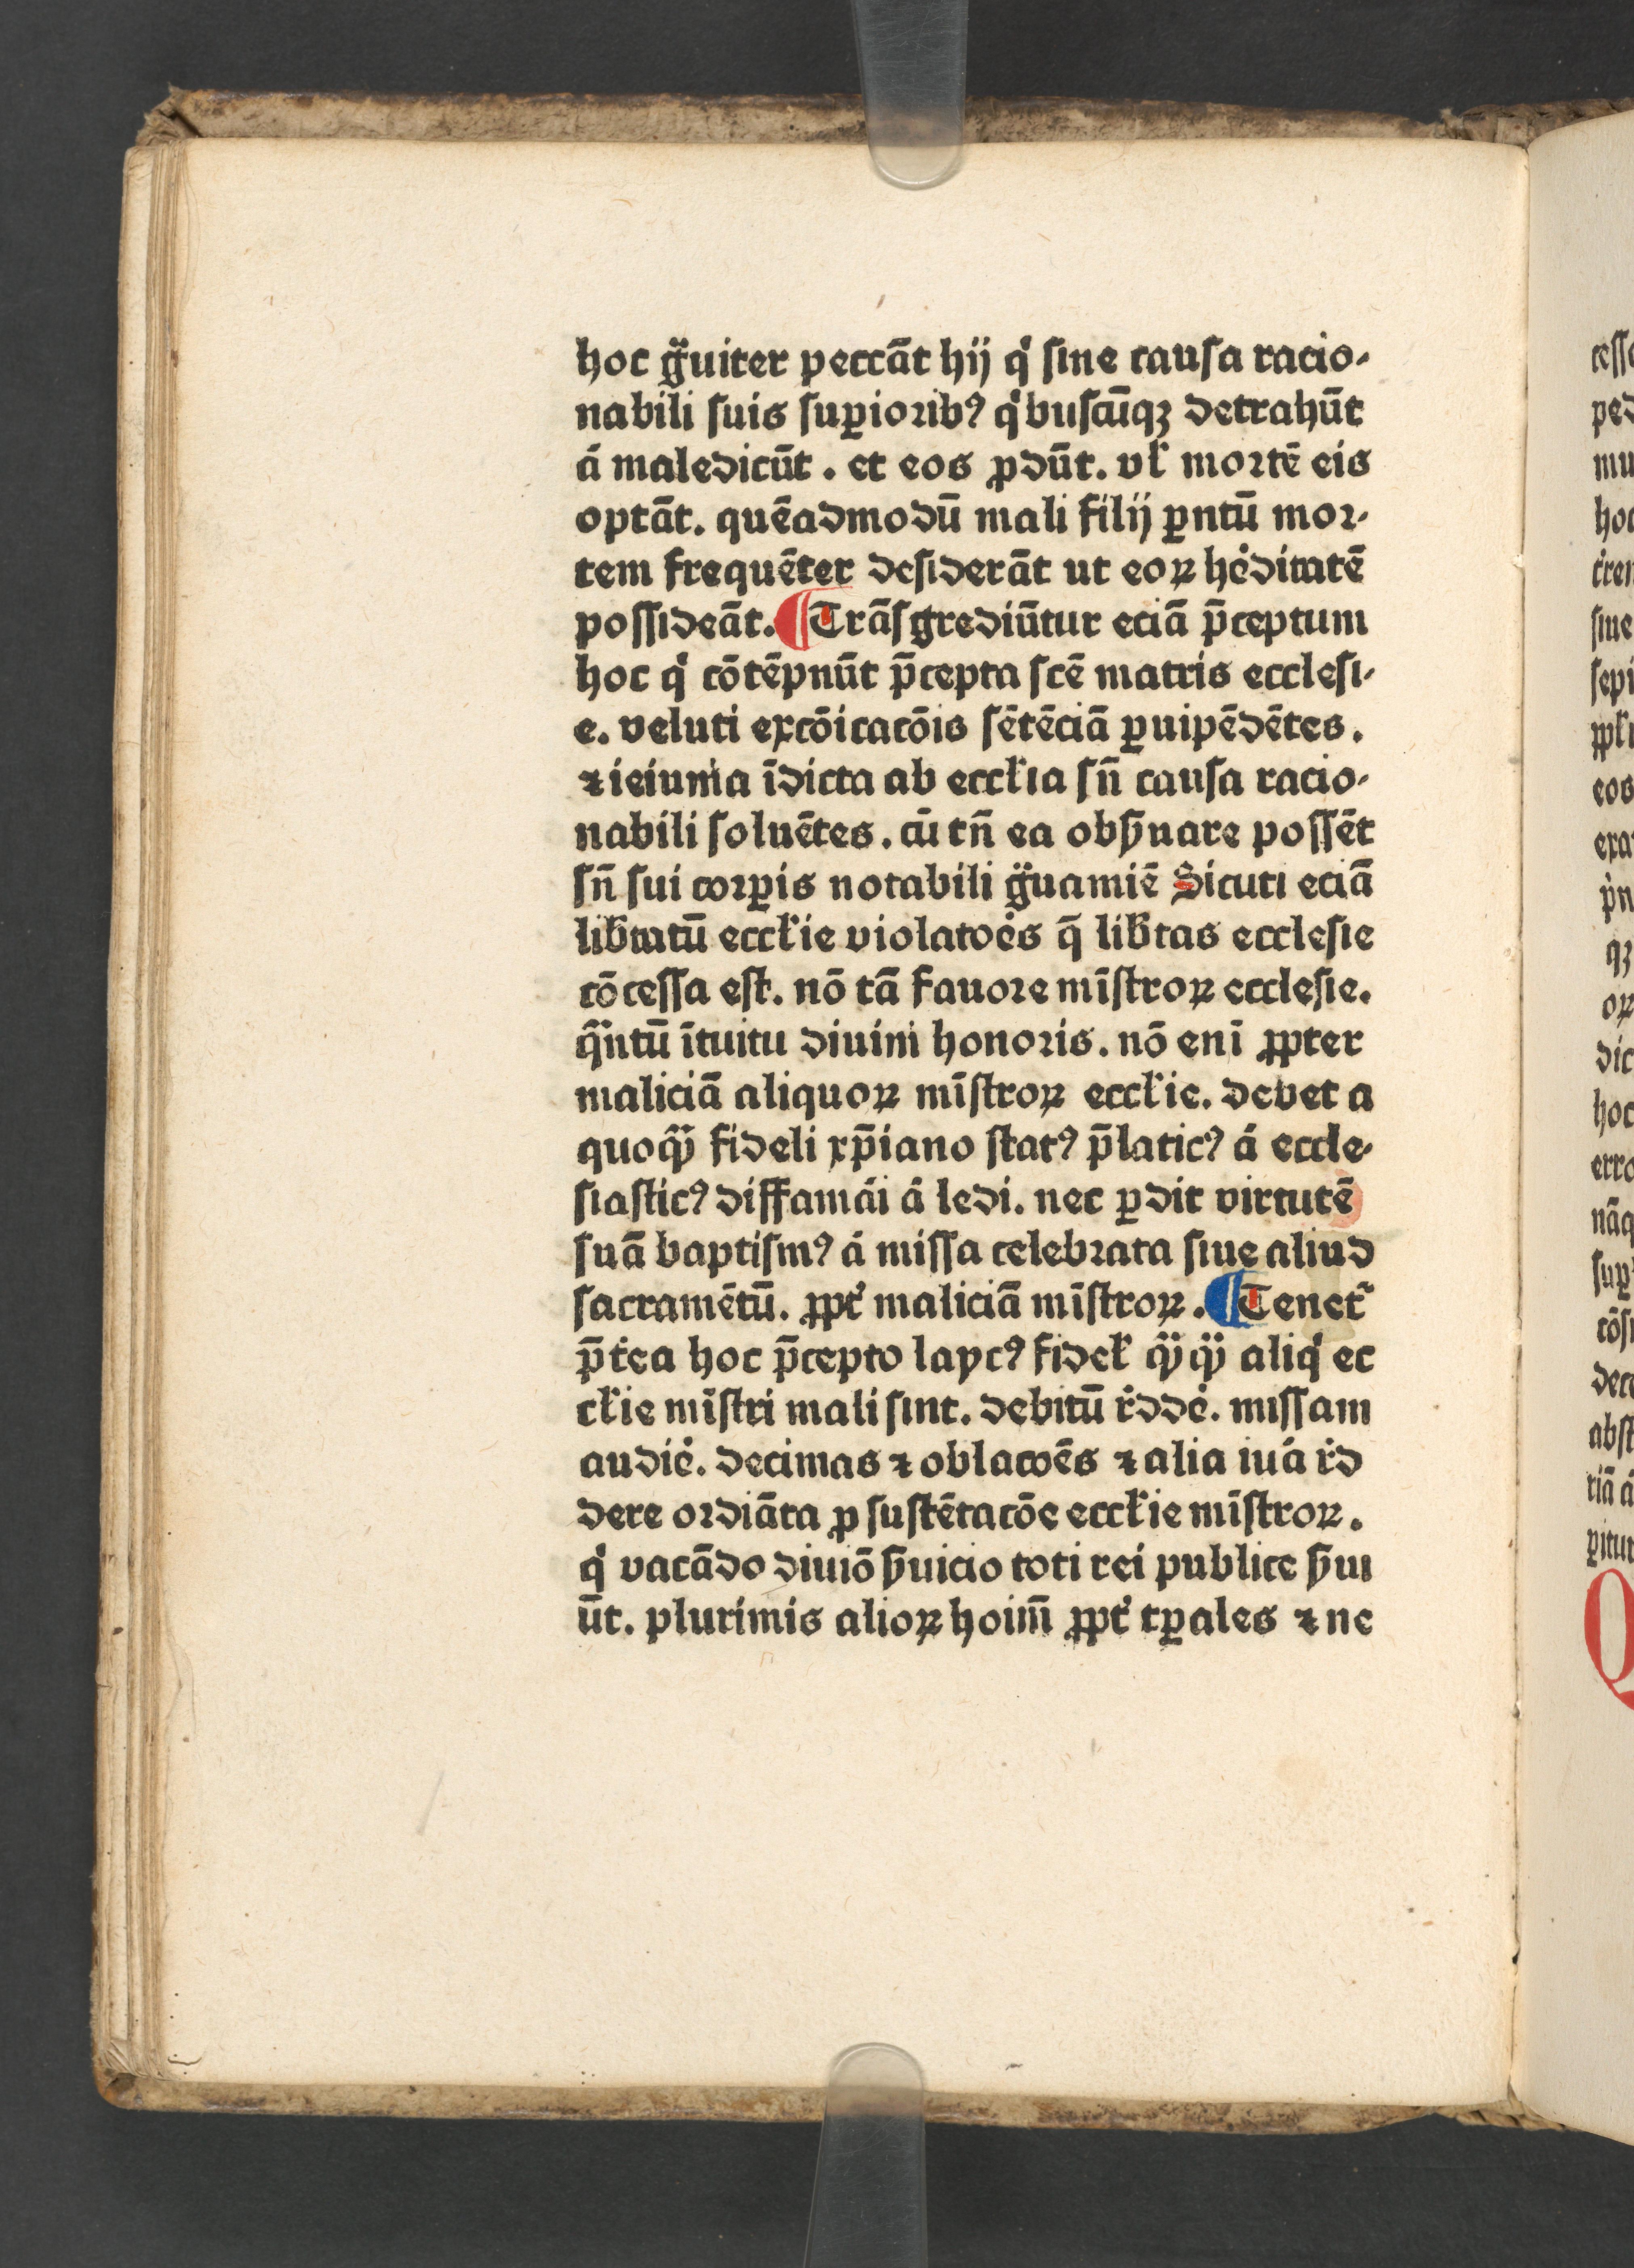 hoc gͣuiter peccāt hij qͥ ſine cauſa racio⸗
nabili ſuis ſuꝑioribꝰ qͥbuſcūqꝫ detrahūt
aͨ maledicūt . et eos ꝓdūt. vł mortē eis
optāt. quēadmodū mali filij ꝑntū mor⸗
tem frequēter deſiderāt ut eoꝝ he᷒ditatē
poſſideāt. ¶Trāſgrediūtur eciā p̄ceptum
hoc qͥ cōtēpnūt p̄cepta ſcē matris eccleſi⸗
e. veluti excōicacōis ſētēciā ꝑuipēdētes .
⁊ ieiunia īdicta ab eccłia ſn̄ cauſa racio⸗
nabili ſoluētes . cū tn̄ ea obẜuare poſſēt
ſn̄ ſui corꝑis notabili gͣuamīe Sicuti eciā
lib̄tatū eccłie violatoe᷒s q̄ lib̄tas eccleſie
cōceſſa eſt. nō tā fauore mīſtroꝝ eccleſie.
qͣntū ītuitu diuini honoris. nō enī ꝓpter
maliciā aliquoꝝ mīſtroꝝ eccłie. debet a
quoqͣ fideli xp̄iano ſtatꝰ p̄laticꝰ aͨ eccle⸗
ſiaſticꝰ diffama᷒i aͨ ledi. nec ꝑdit virtutē
ſuā baptiſmꝰ aͨ miſſa celebrata ſiue aliud
ſacramētū. ꝓpt᷒ maliciā mīſtroꝝ. ¶Tenet᷑
p̄t᷒ea hoc p̄cepto laycꝰ fideł qͣqͣ aliqͥ ec
cłie mīſtri mali ſint. debitū r᷒dde᷒. miſſam
audie᷒. decimas ⁊ oblacoēs ⁊ alia iua᷒ r᷒d
dere ordiāta ꝓ ſuſtētacōe eccłie mīſtroꝝ.
qͥ vacādo diuiō ẜuicio toti rei publice ẜui
ūt. plurimis alioꝝ hoīm̄ ꝓpt᷒ tꝑales ⁊ ne